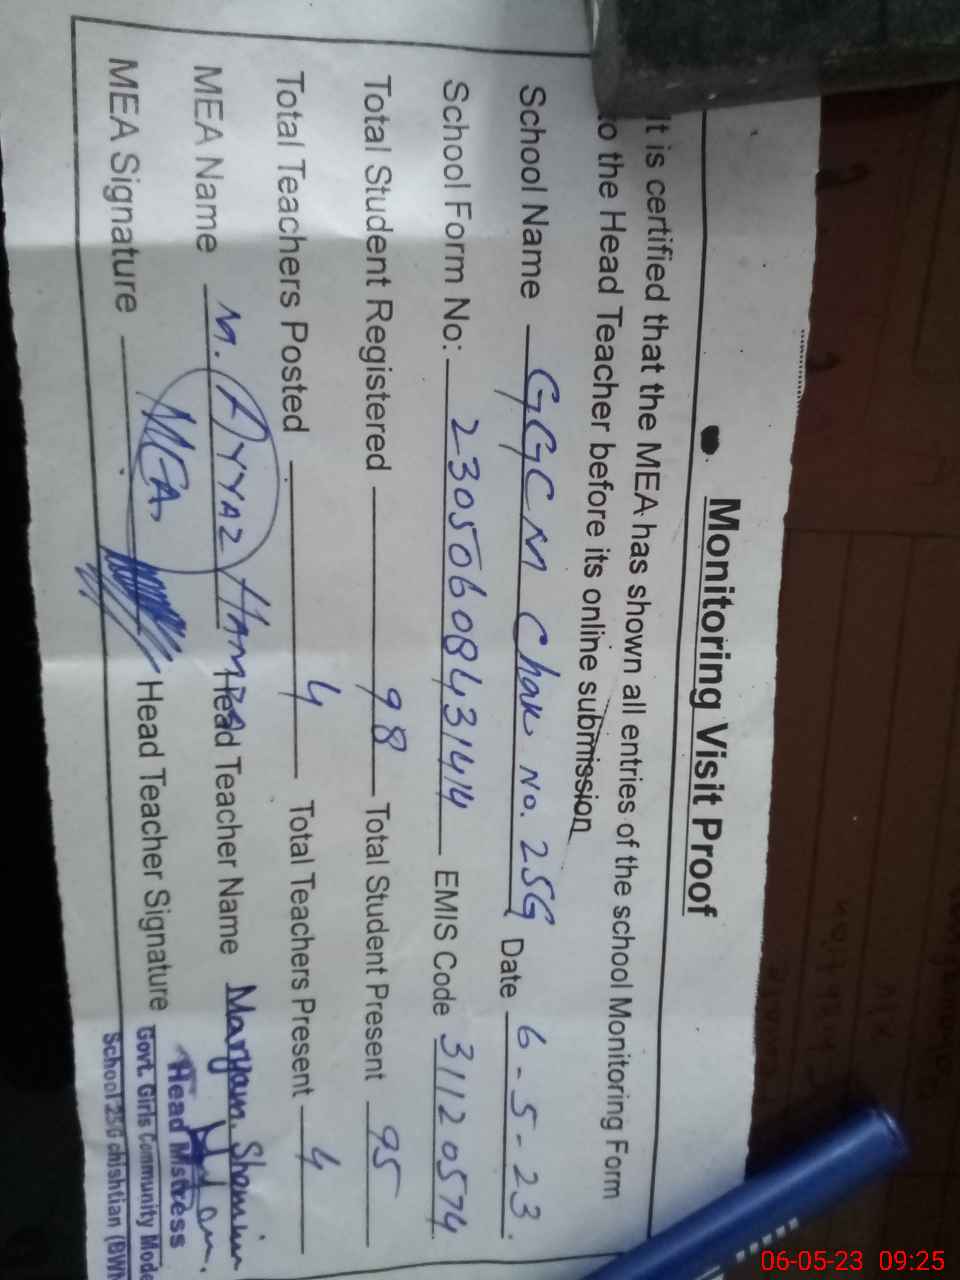 Monitoring Visit Proof
It is certified that the MEA has shown all entries of the school Monitoring Form
to the Head Teacher before its online submission
School Name GGCM Chak No. 25G Date 6-5-23.
School Form No: 23050608431414 EMIS Code 31120574
Total Student Registered 98 Total Student Present 95
Total Teachers Posted 4 Total Teachers Present 4
MEA Name M. AYYAZ Head Teacher Name Maryam Shamim
MEA Signature MEA. Head Teacher Signature
Head Mistress
Govt. Girls Community Mode
School 25G chishtian (BWN
06-05-23 09:25